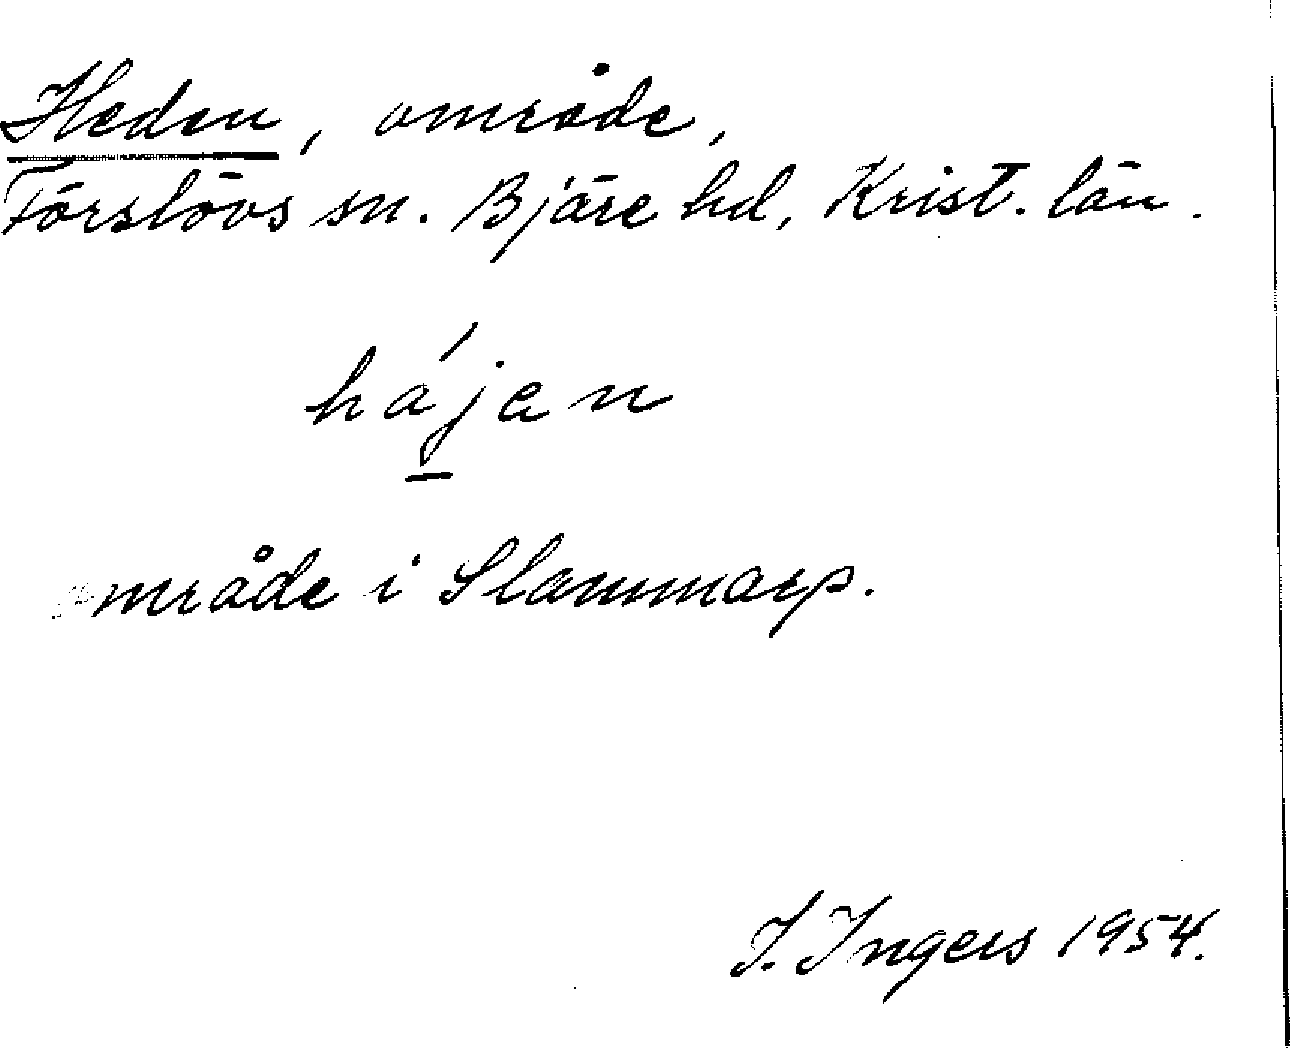 Heden, område,
Förslövs sn. Bjäre hd, Krist. län.
hájen
område i Slammarp.
I. Ingers 1954.